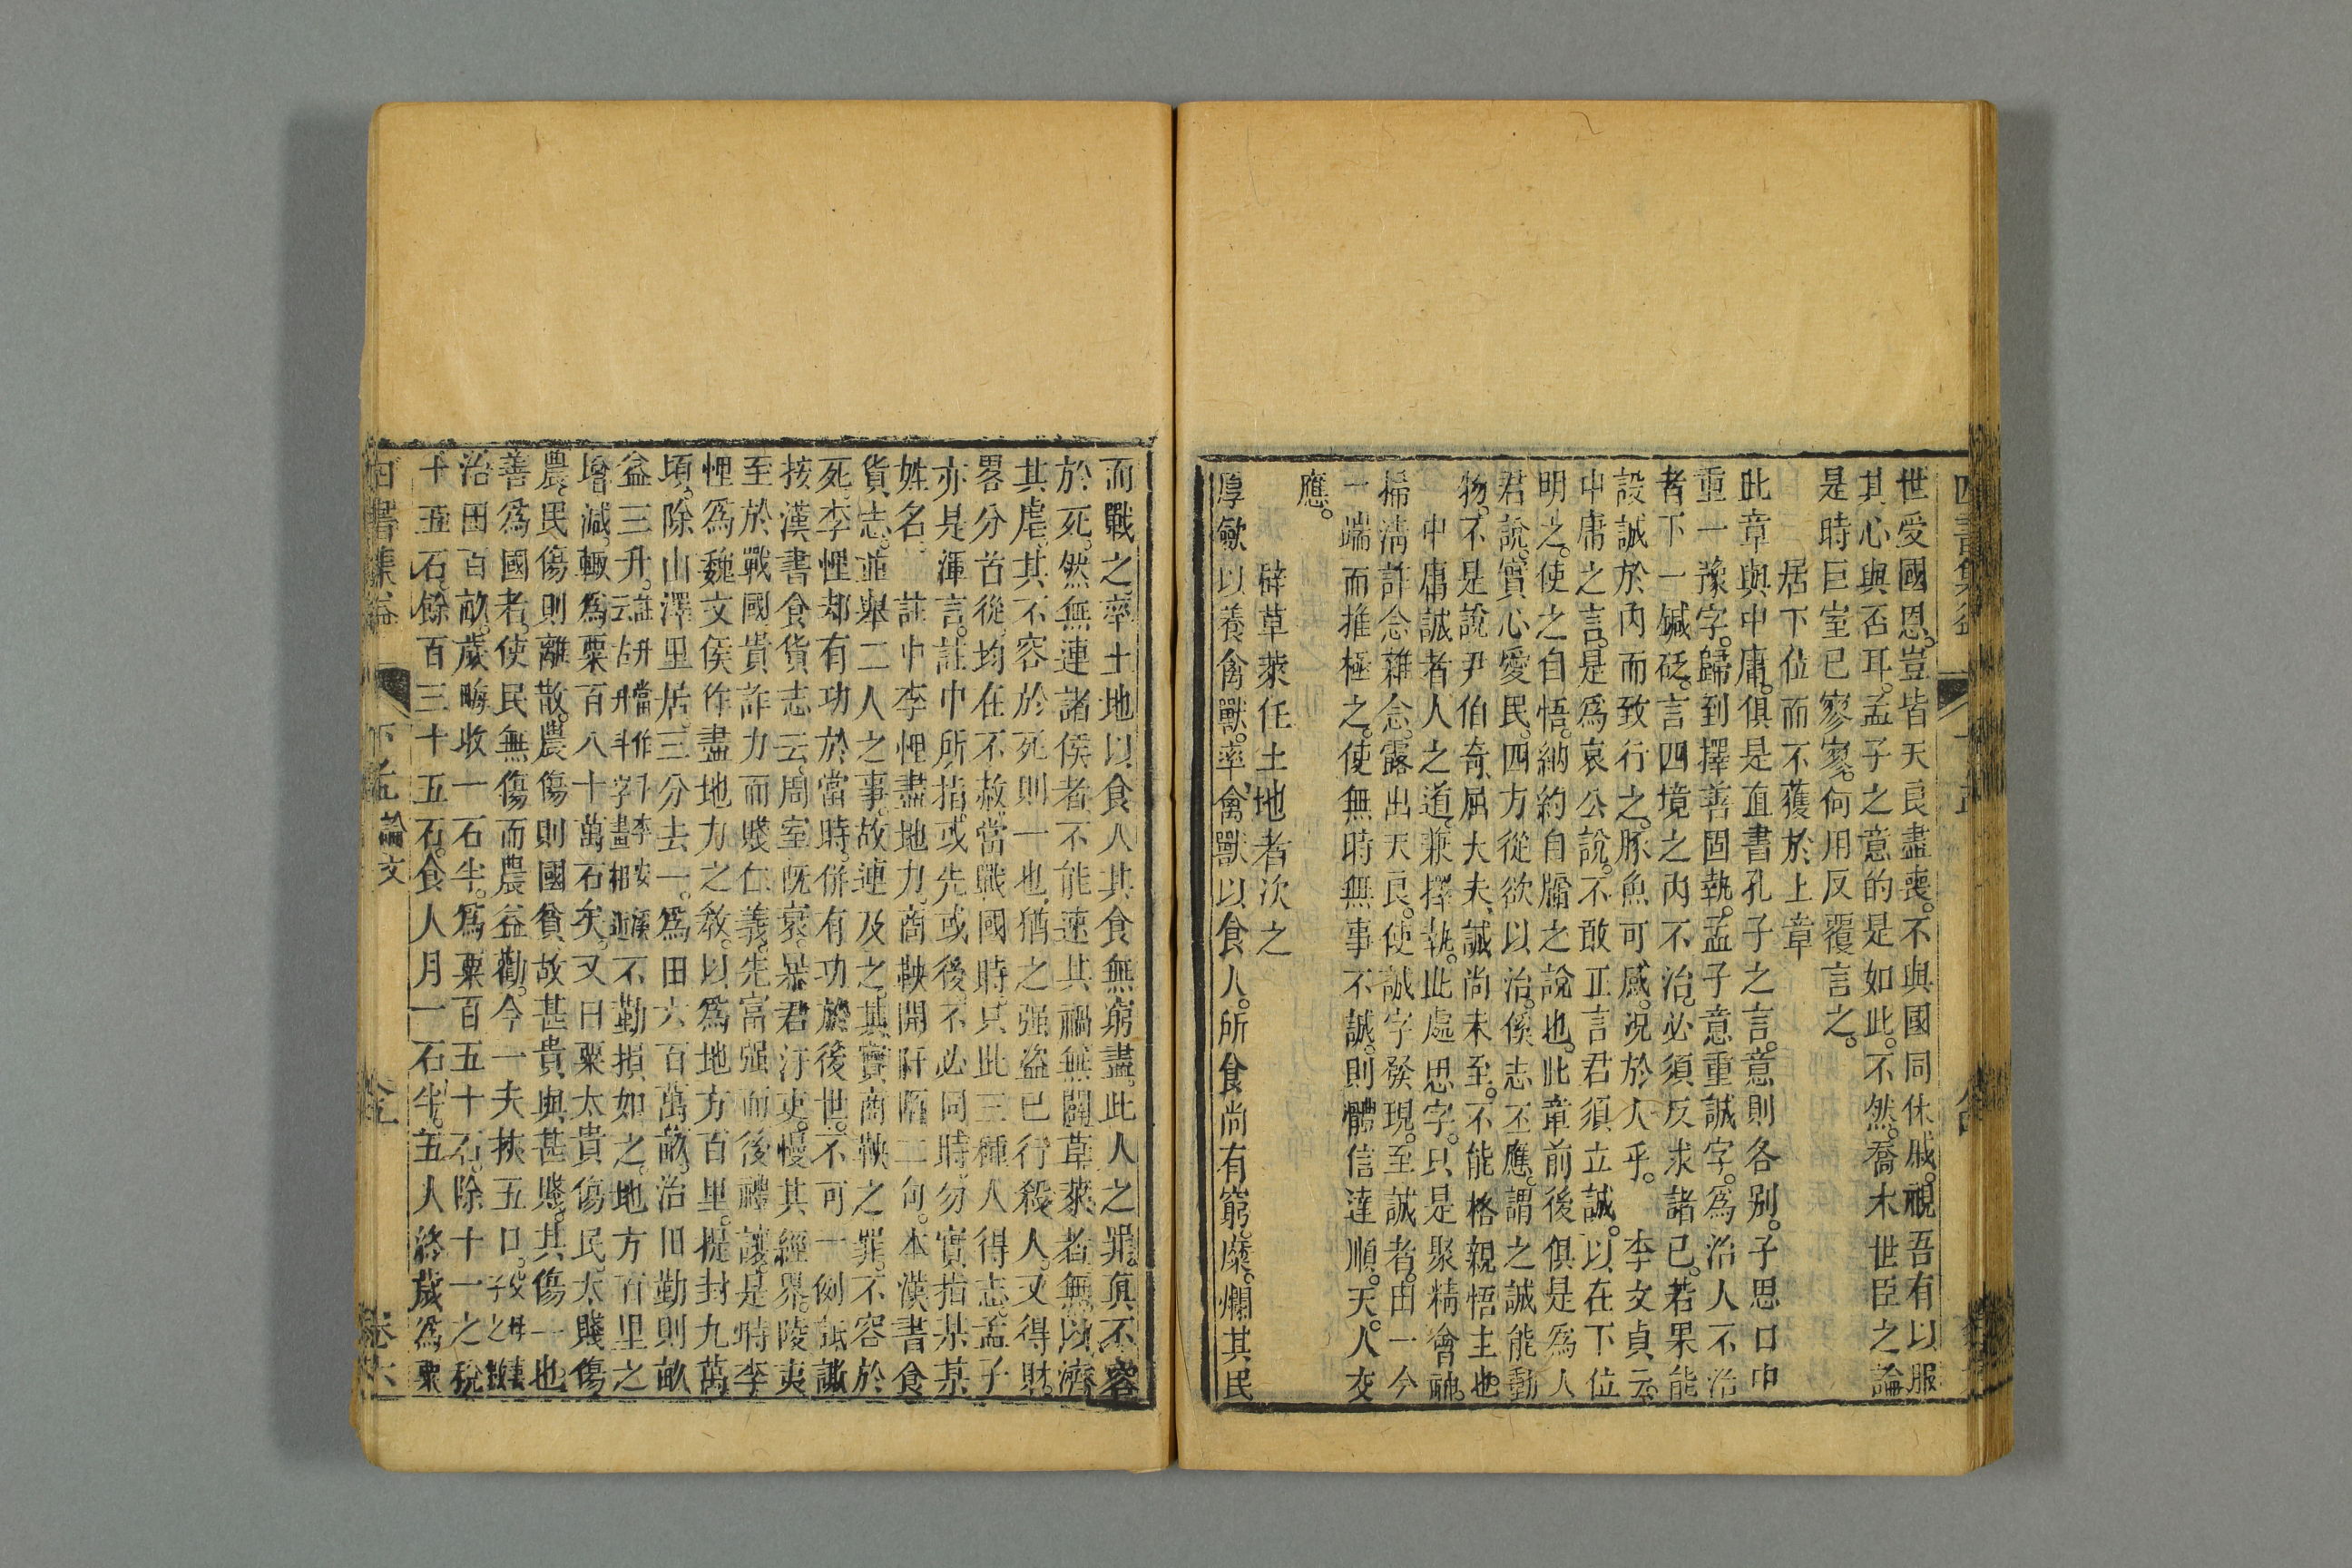 世愛國恩。豈皆天良盡喪。不與國同休戚。視吾有以服
其心與否耳。孟子之意的是如此。不然。喬木世臣之論
是時巨室已寥寥。何用反覆言之。
居下位而不獲於上章
此章與中庸。俱是直書孔子之言。意則各別。子思口中
重一豫字。歸到擇善固執。孟子意重誠字。爲治人不治
者下一鍼砭。言四境之內不治。必須反求諸已。若果能
設誠於內而致行之。豚魚可感。況於人乎。 李文貞云。
中庸之言。是爲哀公說。不敢正言君須立誠。以在下位
明之。使之自悟。納約自牖之說也。此章前後俱是爲人
君說。實心愛民。四方從欲以治。徯志丕應。謂之誠能動
物。不是說尹伯奇、屈大夫、誠尚未至。不能格親悟主也。
中庸誠者人之道兼擇執。此處思字。只是聚精會神。
掃淸詐念雜念。露出天良。使誠字發現。至誠者。由一今
一端而推極之。使無時無事不誠。則體信達順。天人交
應。
辟草萊任土地者次之
厚斂以養禽獸。率禽獸以食人。所食尚有窮。糜爛其民
而戰之率土地以食人其食無窮盡。此人之罪。眞不容
於死。然無連諸侯者不能速其禍無闢草萊者無以濟
其虐。其不容於死則一也。猶之强盜已行殺人。又得財。
畧分首從。均在不赦。當戰國時。只此三種人得志。孟子
亦是渾言。註中所指。或先或後。不必同時。勿實指某某
姓名。 註中李悝盡地力。商鞅開阡陌二句。本漢書食
貨志。並舉二人之事。故連及之。其實商鞅之罪。不容於
死。李悝却有功於當時。併有功於後世。不可一例詆譏
按漢書食貨志云。周室旣衰。暴君汙吏。慢其經界。陵夷
至於戰國。貴詐力而賤仁義。先富强而後禮讓。是時李
悝爲魏文侯作盡地力之敎。以爲地方百里。提封九萬
頃。除山澤里居。三分去一。爲田六百萬畝。治田勤則畝
益三升。不勤損如之。地方百里之
增減。輒爲粟百八十萬石矣。又曰粟太貴傷民。太賤傷
農。民傷則離散。農傷則國貧。故甚貴與甚賤。其傷一也。
善爲國者。使民無傷而農益勸。今一夫挾五口。
治田百畝。歲畮收一石半。爲粟百五十石。除十一之稅
十五石。餘百三十五石。食人月一石半。五人終歲爲粟